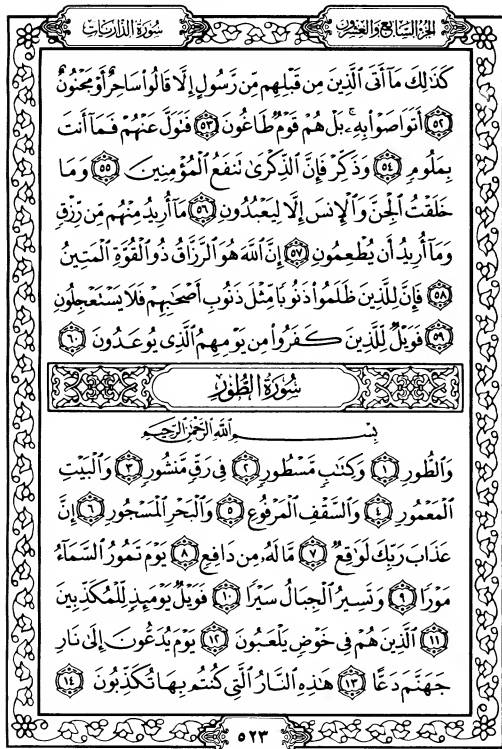 الجزء السابع والعشرون
سورة الذاريات
كَذَٰلِكَ مَآ أَتَى الَّذِينَ مِن قَبْلِهِم مِّن رَّسُولٍ إِلَّا قَالُوا۟ سَاحِرٌ أَوْ مَجْنُونٌ
﴿٥٢﴾ أَتَوَاصَوْا۟ بِهِۦ ۚ بَلْ هُمْ قَوْمٌ طَاغُونَ ﴿٥٣﴾ فَتَوَلَّ عَنْهُمْ فَمَآ أَنتَ
بِمَلُومٍ ﴿٥٤﴾ وَذَكِّرْ فَإِنَّ الذِّكْرَىٰ تَنفَعُ الْمُؤْمِنِينَ ﴿٥٥﴾ وَمَا
خَلَقْتُ الْجِنَّ وَالْإِنسَ إِلَّا لِيَعْبُدُونِ ﴿٥٦﴾ مَآ أُرِيدُ مِنْهُم مِّن رِّزْقٍ
وَمَآ أُرِيدُ أَن يُطْعِمُونِ ﴿٥٧﴾ إِنَّ اللَّهَ هُوَ الرَّزَّاقُ ذُو الْقُوَّةِ الْمَتِينُ
﴿٥٨﴾ فَإِنَّ لِلَّذِينَ ظَلَمُوا۟ ذَنُوبًا مِّثْلَ ذَنُوبِ أَصْحَٰبِهِمْ فَلَا يَسْتَعْجِلُونِ
﴿٥٩﴾ فَوَيْلٌ لِّلَّذِينَ كَفَرُوا۟ مِن يَوْمِهِمُ الَّذِى يُوعَدُونَ ﴿٦٠﴾
سُورَةُ الطُّورِ
بِسْمِ اللَّهِ الرَّحْمَٰنِ الرَّحِيمِ
وَالطُّورِ ﴿١﴾ وَكِتَٰبٍ مَّسْطُورٍ ﴿٢﴾ فِى رَقٍّ مَّنشُورٍ ﴿٣﴾ وَالْبَيْتِ
الْمَعْمُورِ ﴿٤﴾ وَالسَّقْفِ الْمَرْفُوعِ ﴿٥﴾ وَالْبَحْرِ الْمَسْجُورِ ﴿٦﴾ إِنَّ
عَذَابَ رَبِّكَ لَوَٰقِعٌ ﴿٧﴾ مَّا لَهُۥ مِن دَافِعٍ ﴿٨﴾ يَوْمَ تَمُورُ السَّمَآءُ
مَوْرًا ﴿٩﴾ وَتَسِيرُ الْجِبَالُ سَيْرًا ﴿١٠﴾ فَوَيْلٌ يَوْمَئِذٍ لِّلْمُكَذِّبِينَ
﴿١١﴾ الَّذِينَ هُمْ فِى خَوْضٍ يَلْعَبُونَ ﴿١٢﴾ يَوْمَ يُدَعُّونَ إِلَىٰ نَارِ
جَهَنَّمَ دَعًّا ﴿١٣﴾ هَٰذِهِ النَّارُ الَّتِى كُنتُم بِهَا تُكَذِّبُونَ ﴿١٤﴾
٥٢٣